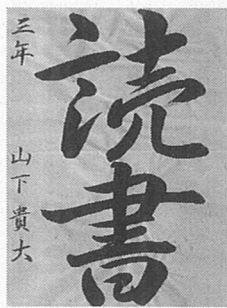 読書
三年 山下貴大